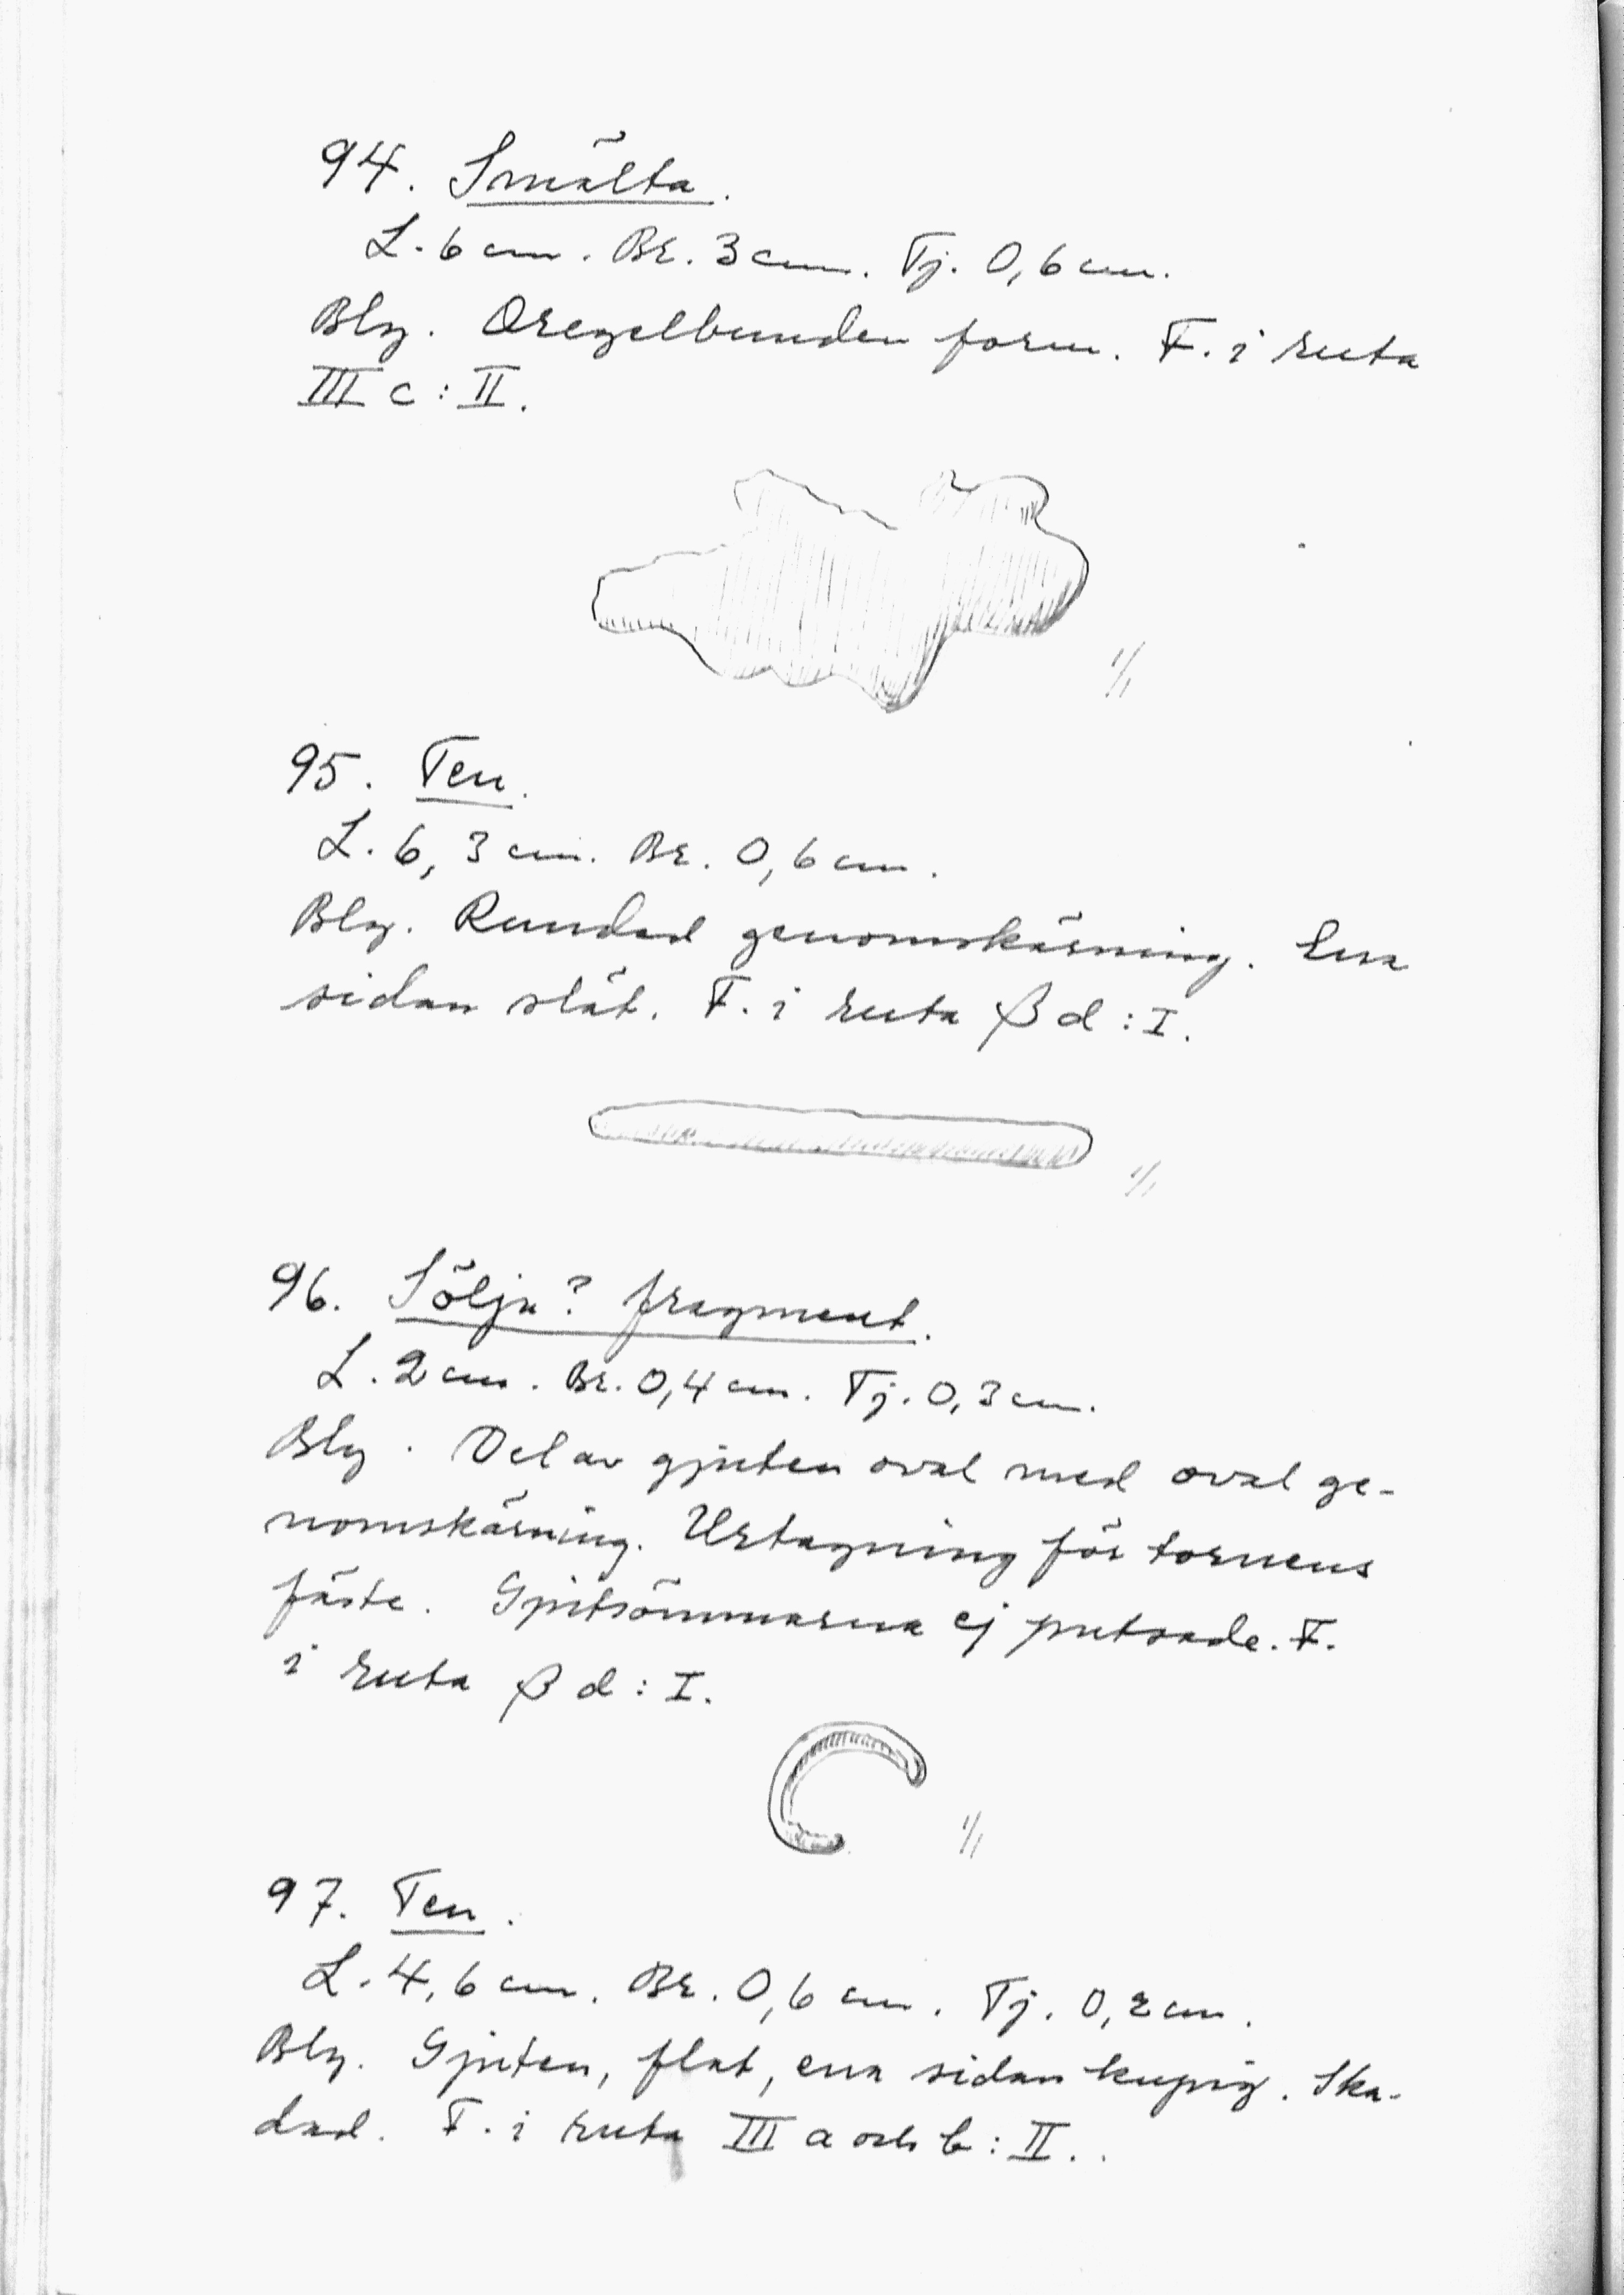 94. Smälta.
L. 6 cm. Br. 3 cm. Tj. 0,6 cm.
Bly. Oregelbunden form. F. i ruta
III c : II.
1/1
95. Ten.
L. 6,3 cm. Br. 0,6 cm.
Bly. Rundad genomskärning. Ena
sidan slät. F. i ruta β d : I.
1/1
96. Sölja? fragment.
L. 2 cm. Br. 0,4 cm. Tj. 0,3 cm.
Bly. Del av gjuten oval med oval ge-
nomskärning. Urtagning för tornens
fäste. Gjutsömmarna ej putsade. F.
i ruta β d : I.
1/1
97. Ten.
L. 4,6 cm. Br. 0,6 cm. Tj. 0,2 cm.
Bly. Gjuten, flat, ena sidan kupig. Ska-
dad. F. i ruta III a och b : II.